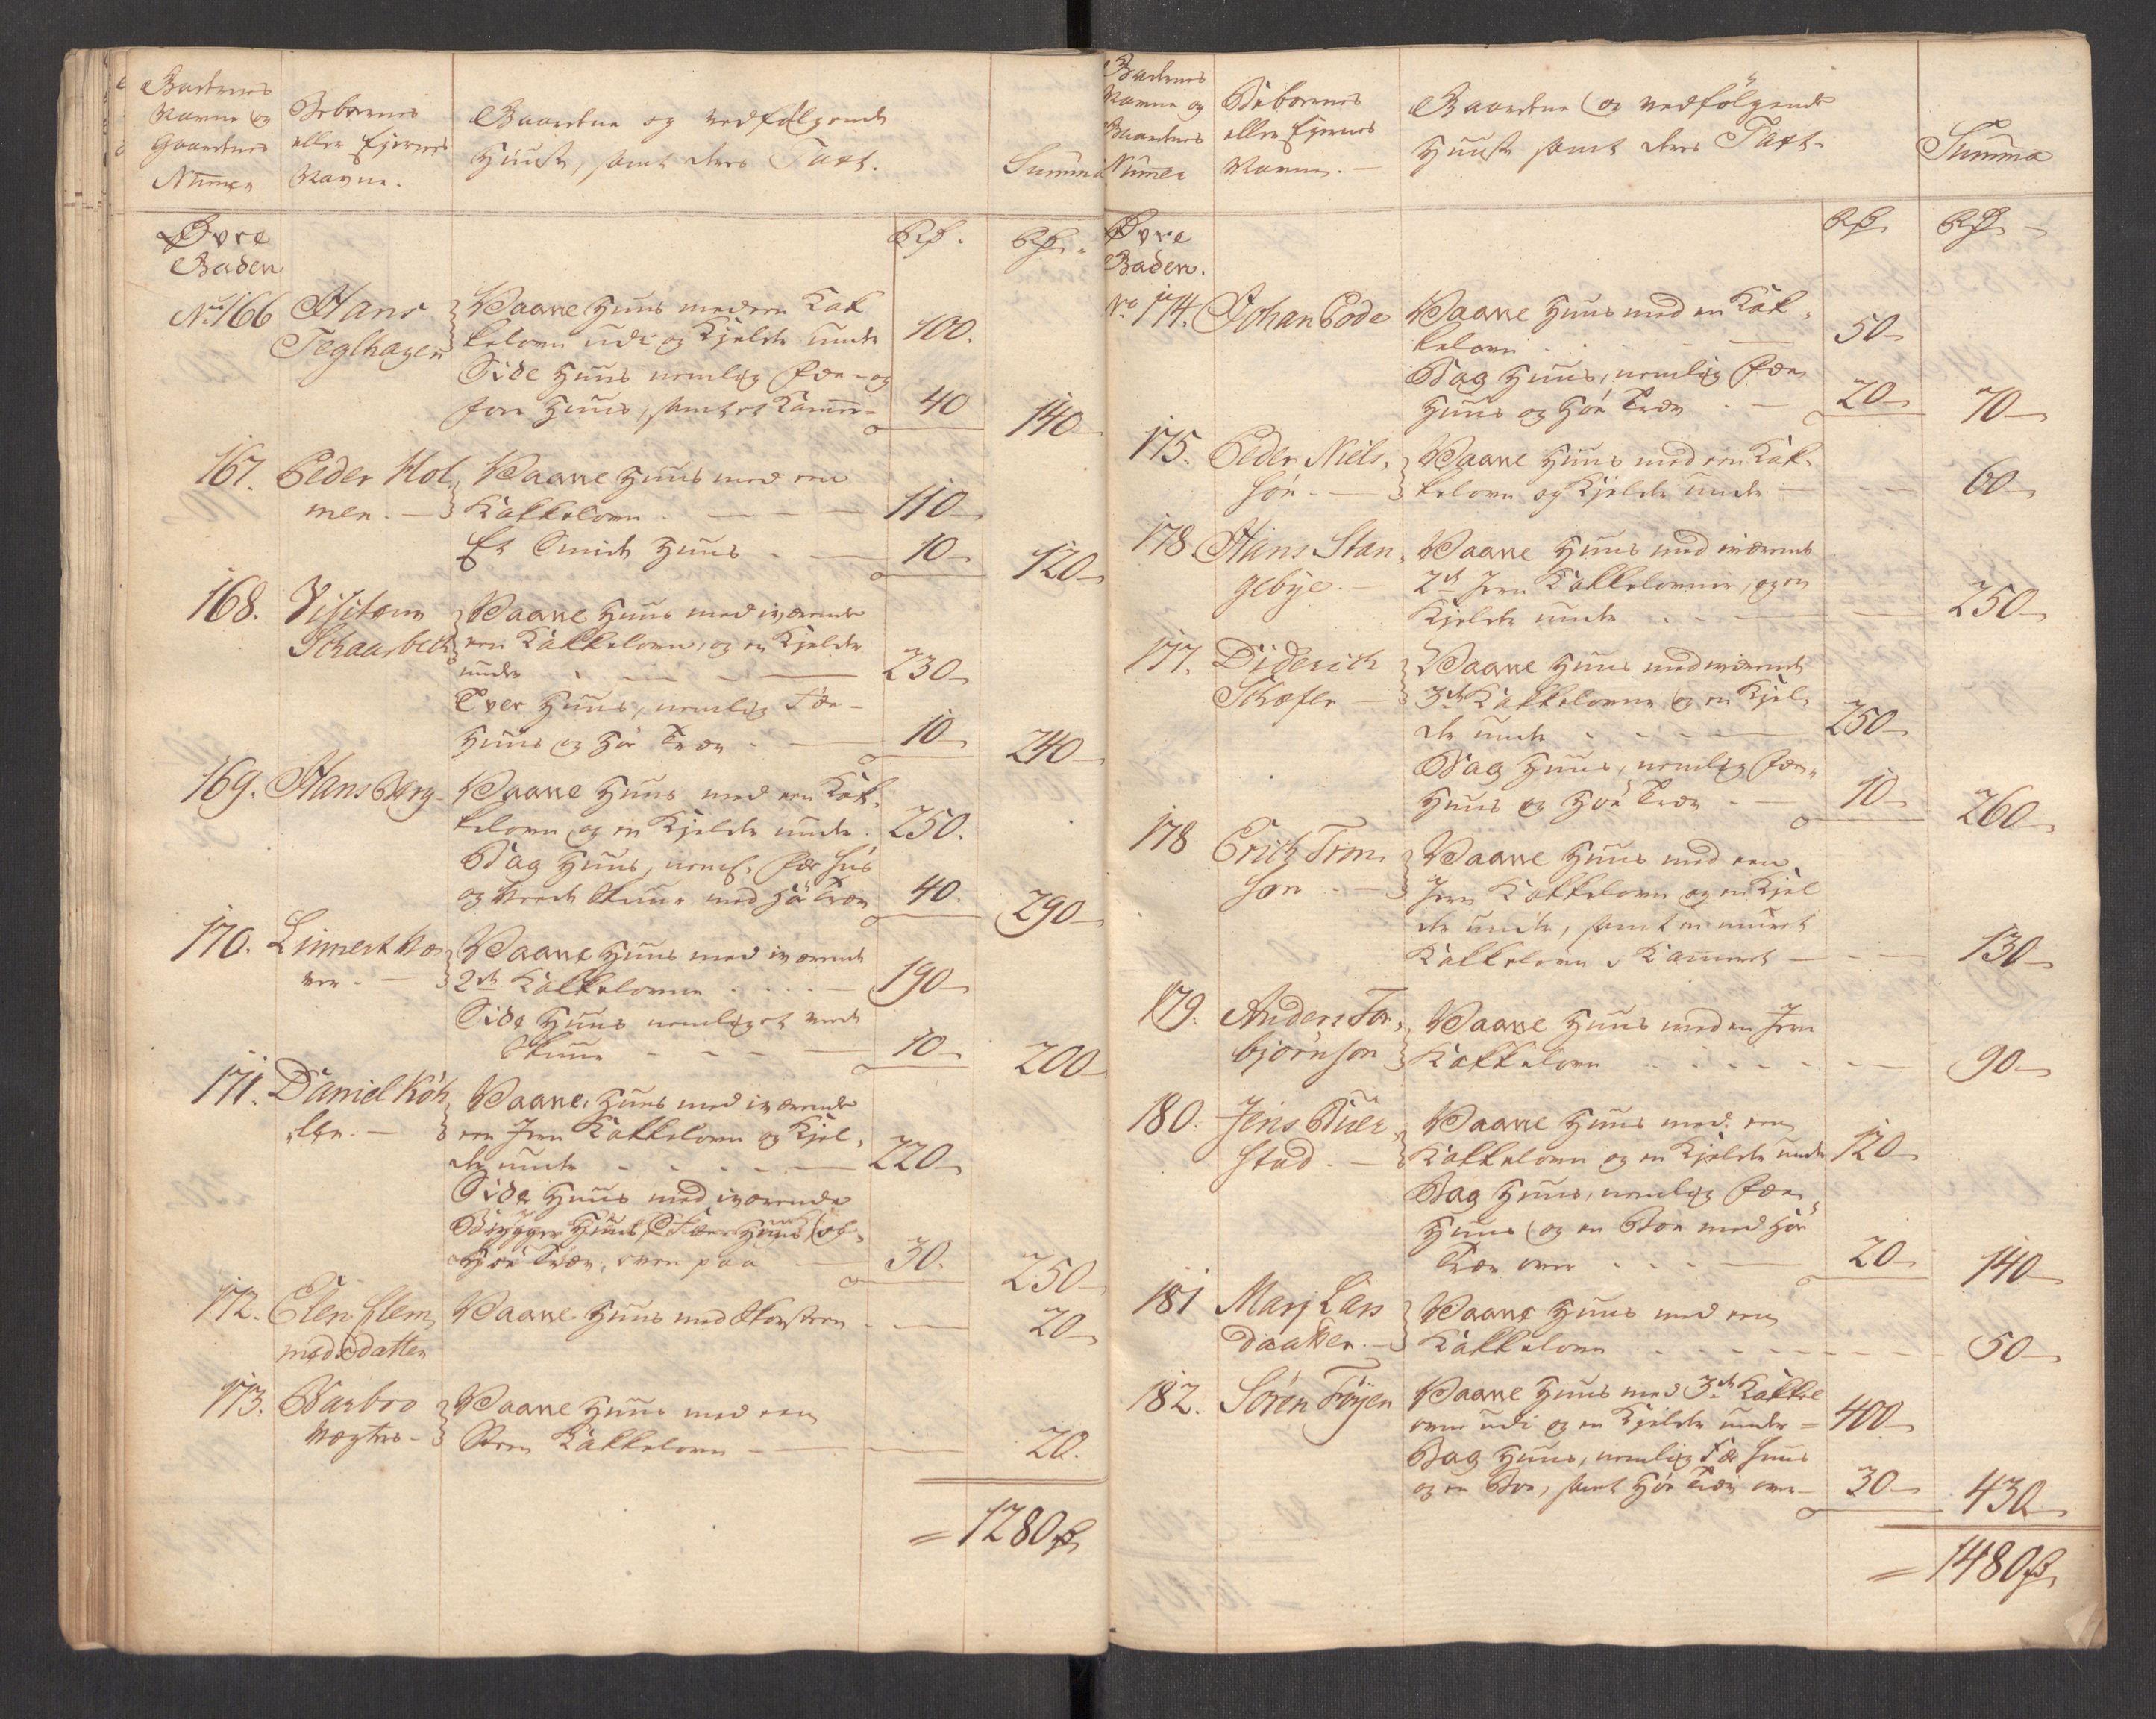 Gadernes
Navne og
Gaardenes
Numer
Beboernes
eller Ejernes
Navne.
Gaardene og vedfølgende
Huuse, samt deres Taxt.
Summa
Øvre
Baden
Rd.
Rd.
No. 166 Hans
Teglhagen
Vaane Huus med een Kak
kelovn udi og Kjelder under 100.
Side Huus nemlig Fæe- og
Foer Huus, samt et Kammer 40
140
167. Peder Hol
men.
Vaane Huus med een
Kakkelovn 110
Et Smide Huus 10
120
168. Visiteur
Schaarbech
Vaane Huus med iværende
een Kakkelovn, og en Kjelder
under 230
Tver Huus, nemlig Fæe-
Huus og Høe Træv 10
240
169. Hans Berg
Vaane Huus med een Kak-
kelovn og en Kjelder under 250.
Bag Huus, neml. Fæe Huus
og Veede Skuur med Høe Træv 40.
290
170. Linnert
Vaane Huus med iværende
2de Kakkelovne 190
Side Huus nemlig et Veede
Skuur 10
200
171. Daniel Köh
ler.
Vaane Huus med iværende
een Jern Kakkelovn og Kjel-
der under 220
Side Huus med iværende
Brygger Huus, Fæe Huus og
Høe Træv, oven paa 30.
250
172. Elen Clem
medsdatter
Vaane Huus med Skorsteen
20
173. Barbro
Vægter
Vaane Huus med een
Steen Kakkelovn
20.
= 1280 Rd.
Gadernes
Navne og
Gaardenes
Numer
Beboernes
eller Ejernes
Navne.
Gaardene og vedfølgende
Huuse samt deres Taxt.
Summa
Øvre
Baden.
Rd.
Rd.
No. 174. Johan Bode
Vaane Huus med en Kak-
kelovn 50
Bag Huus, nemlig Fæe
Huus og Høe Træv 20
70
175. Peder Niels
søn.
Vaane Huus med een Kak-
kelovn og Kjelder under
60
178. Hans Stan
gebye.
Vaane Huus med iværende
2de Jern Kakkelovner, og en
Kjelder under
250
177. Diderich
Schæfer
Vaane Huus med iværende
3de Kakkelovne og en Kjel-
der under 250
Bag Huus, nemlig Fæe-
Huus og Høe Træv 10
260
178 Erich Tron
søn
Vaane Huus med een
Jern Kakkelovn og en Kjel
der under, samt en muuret
Kakkelovn i Kammeret
130
179. Anders Tor
bjørnsøn
Vaane Huus med en Jern
Kakkelovn
90
180. Jens Buer
stad.
Vaane Huus med een
Kakkelovn og en Kjelder under 120
Bag Huus, nemlig Fæe
Huus og en Boe med Høe
Træv over 20
140
181 Marj Lars
Daatter.
Vaane Huus med een
Kakkelovn
50
182. Søren Frøyen
Vaane Huus med 3de Kakkel
ovne udi og en Kjelder under = 400
Bag Huus, nemlig Fæe Huus
og en Boe, samt Høe Træv over 30
430
= 1480 Rd.